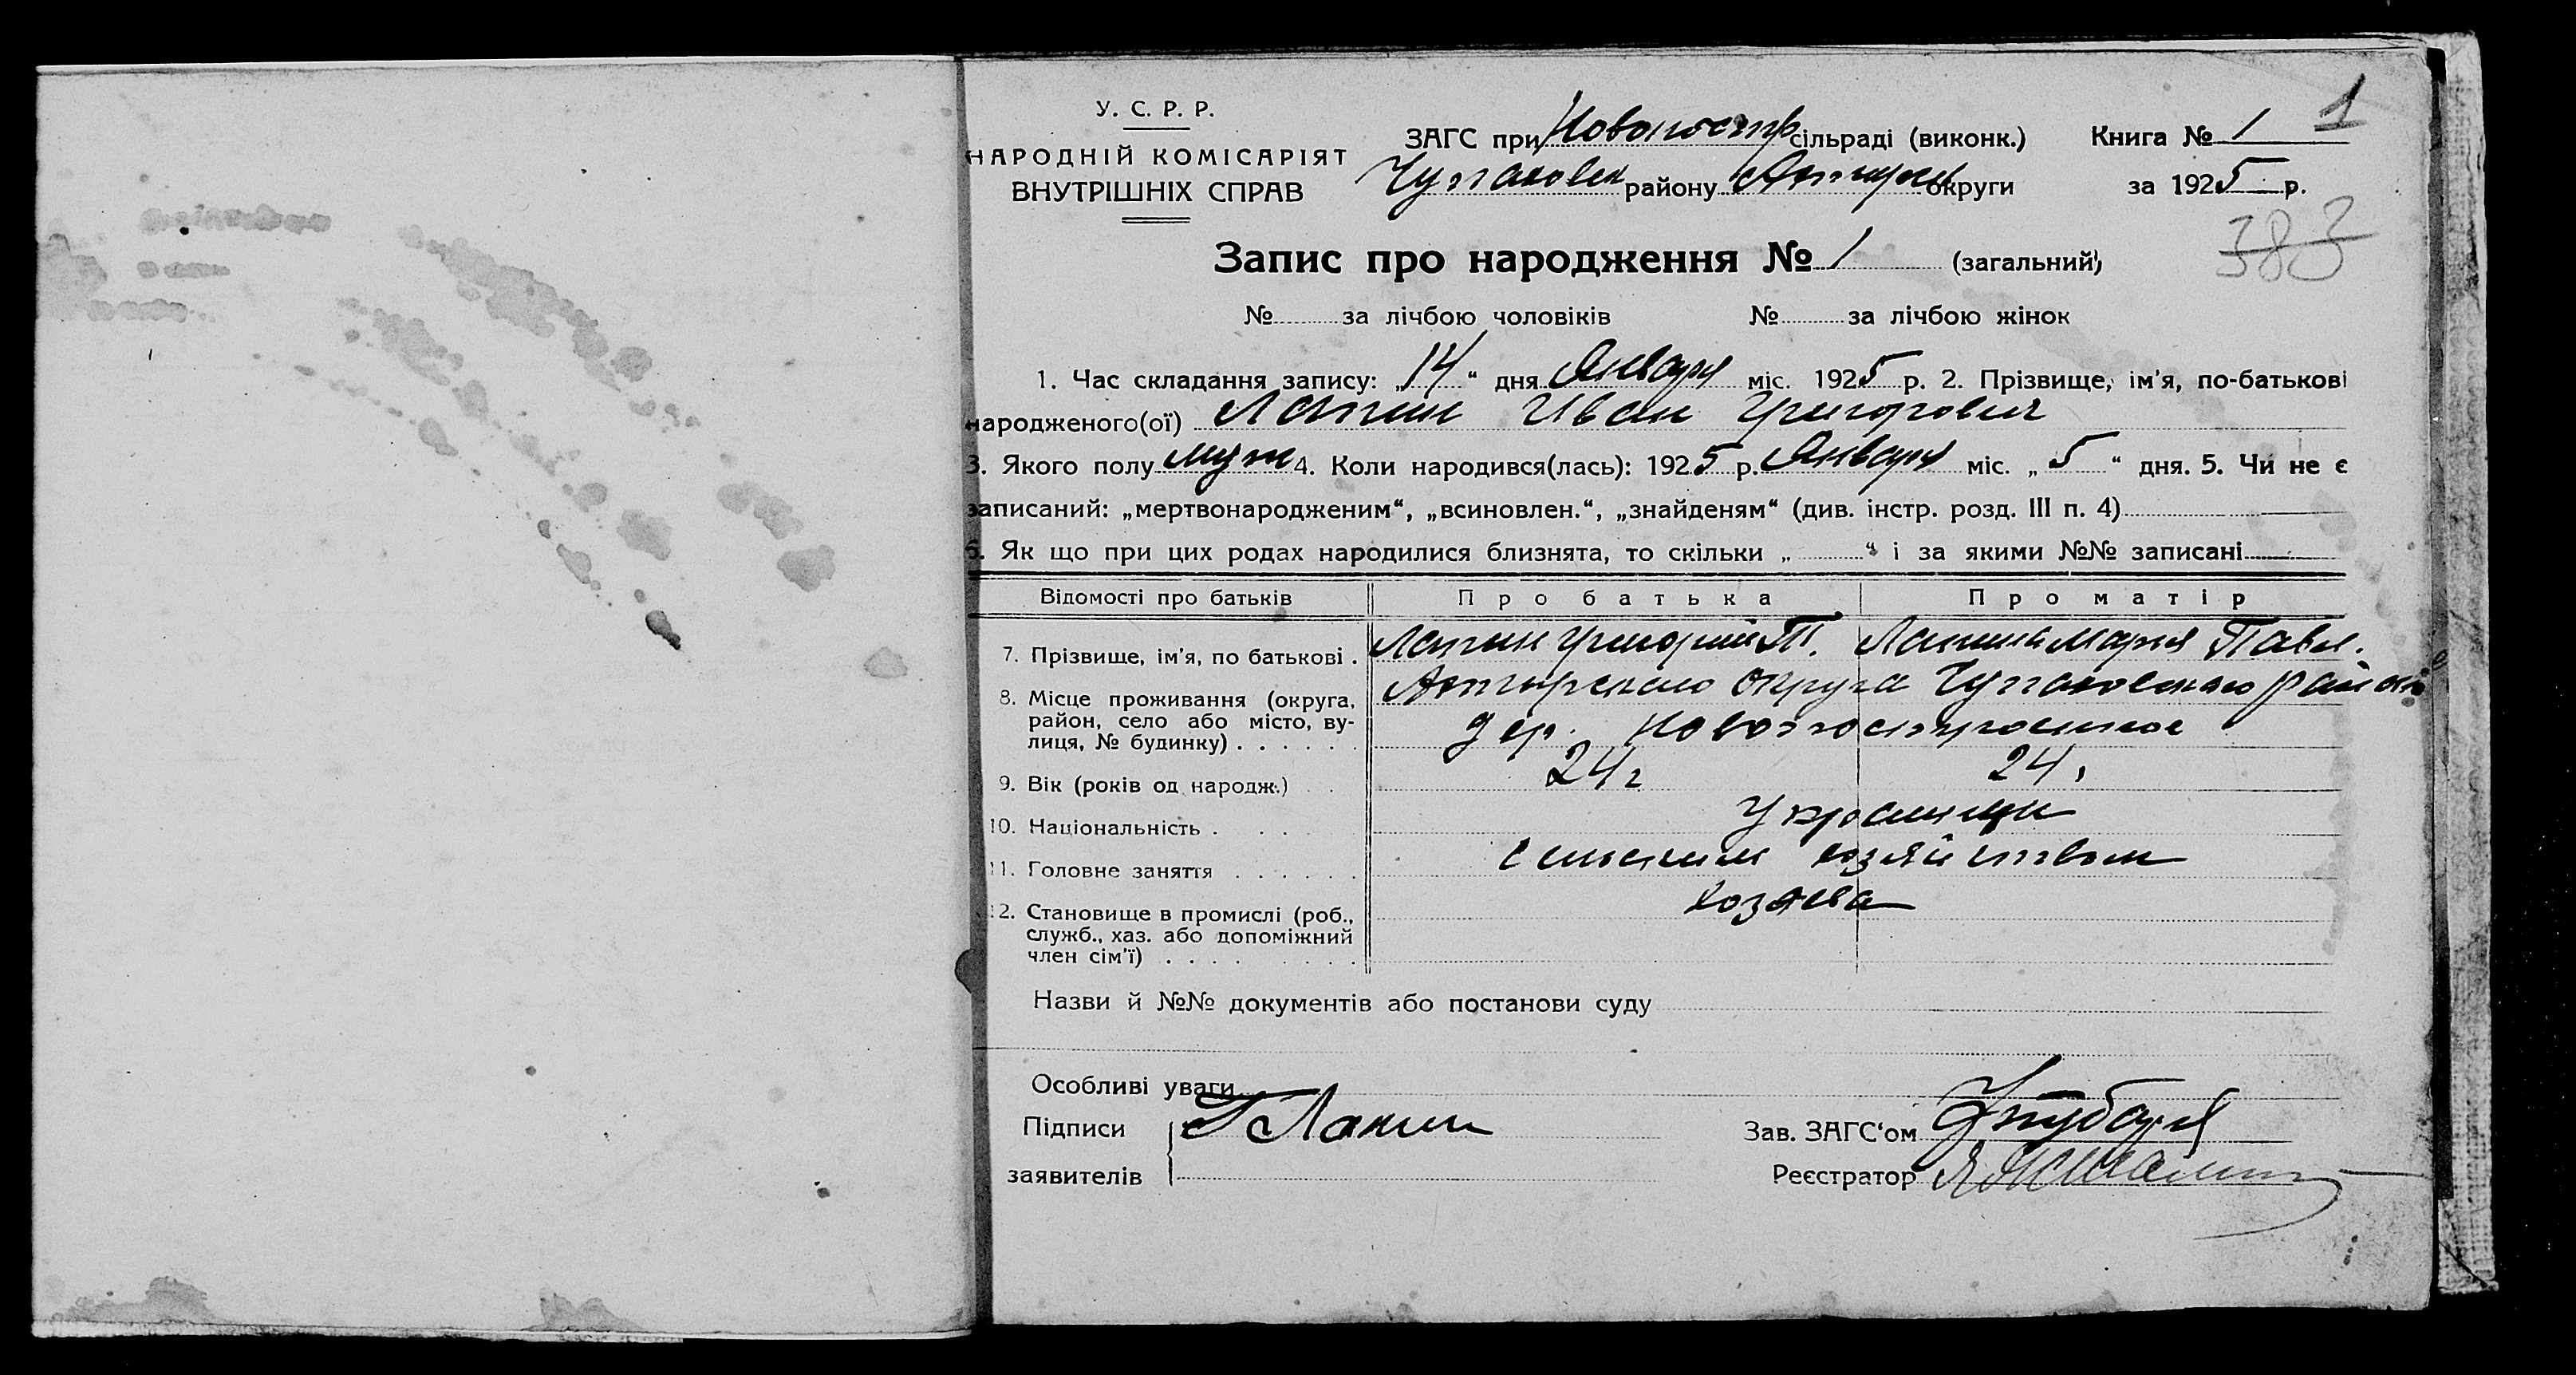 У. С. Р. Р.
НАРОДНІЙ КОМІСАРІЯТ
ВНУТРІШНІХ СПРАВ
ЗАГС при Новопостр сільраді (виконк.) Книга № 1 1
Чупаховск району округи за 1925 р.
383
Запис про народження № 1 (загальний)
№ за лічбою чоловіків № за лічбою жінок
1. Час складання запису: „14“ дня Января міс. 1925 р. 2. Прізвище, ім'я, по-батькові
народженого(ої) Лапин Иван Григорович
3. Якого полу муж 4. Коли народився(лась): 1925 р. Января міс. „5“ дня. 5. Чи не є
записаний: „мертвонародженим“, „всиновлен.“, „знайденям“ (див. інстр. розд. III п. 4)
6. Як що при цих родах народилися близнята, то скільки „ “ і за якими №№ записані
Відомості про батьків Про батька Про матір
7. Прізвище, ім'я, по батькові . Лапин Григорий П. Лапина Мария Павл.
8. Місце проживання (округа, район, село або місто, вулиця, № будинку) . . . . . . Ахтырскаго округа Чупаховскаго района
дер. Новопостроенное
9. Вік (років од народж.) . . 24 г 24.
10. Національність . . . . Украинцы
11. Головне заняття . . . . . . сельским хозяйством
12. Становище в промислі (роб., служб., хаз. або допоміжний член сім'ї) . . . . . . . . хозяева
Назви й №№ документів або постанови суду
Особливі уваги
Підписи Г Лапин Зав. ЗАГС'ом
заявителів Реєстратор